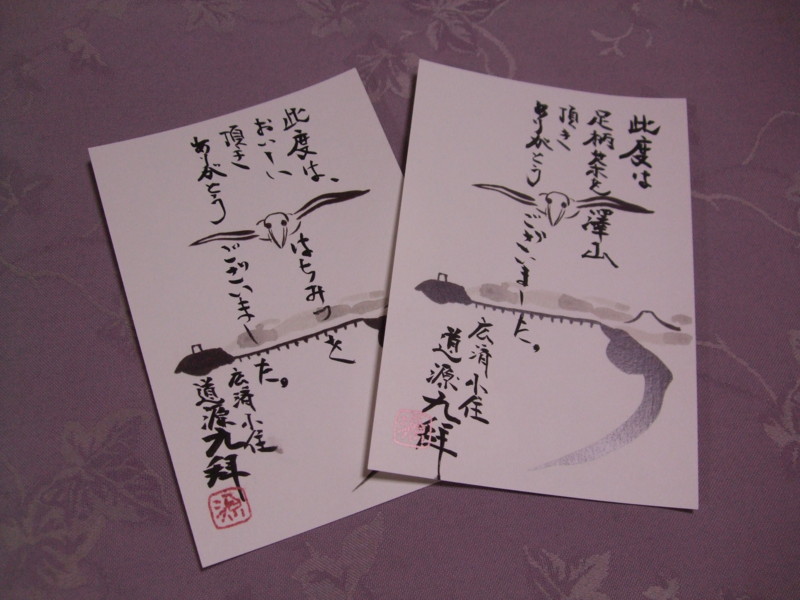 此度は、
おいしい
はちみつを
頂き
ありがとう
ございました。
広済小住
道源九拜
源
此度は
足柄茶を澤山
頂き
ありがとう
ございました。
広済小住
道源九拜